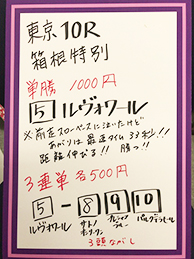 東京10R
箱根特別
単勝 1000円
5 ルヴォワール
※前走スローペースに泣いたけど
あがりは最速タイム33秒!!
距離伸びる!! 勝っ!!
3連単 各500円
5 - 8 9 10
ルヴォワール サトノ パルクデラモール
3頭ながし